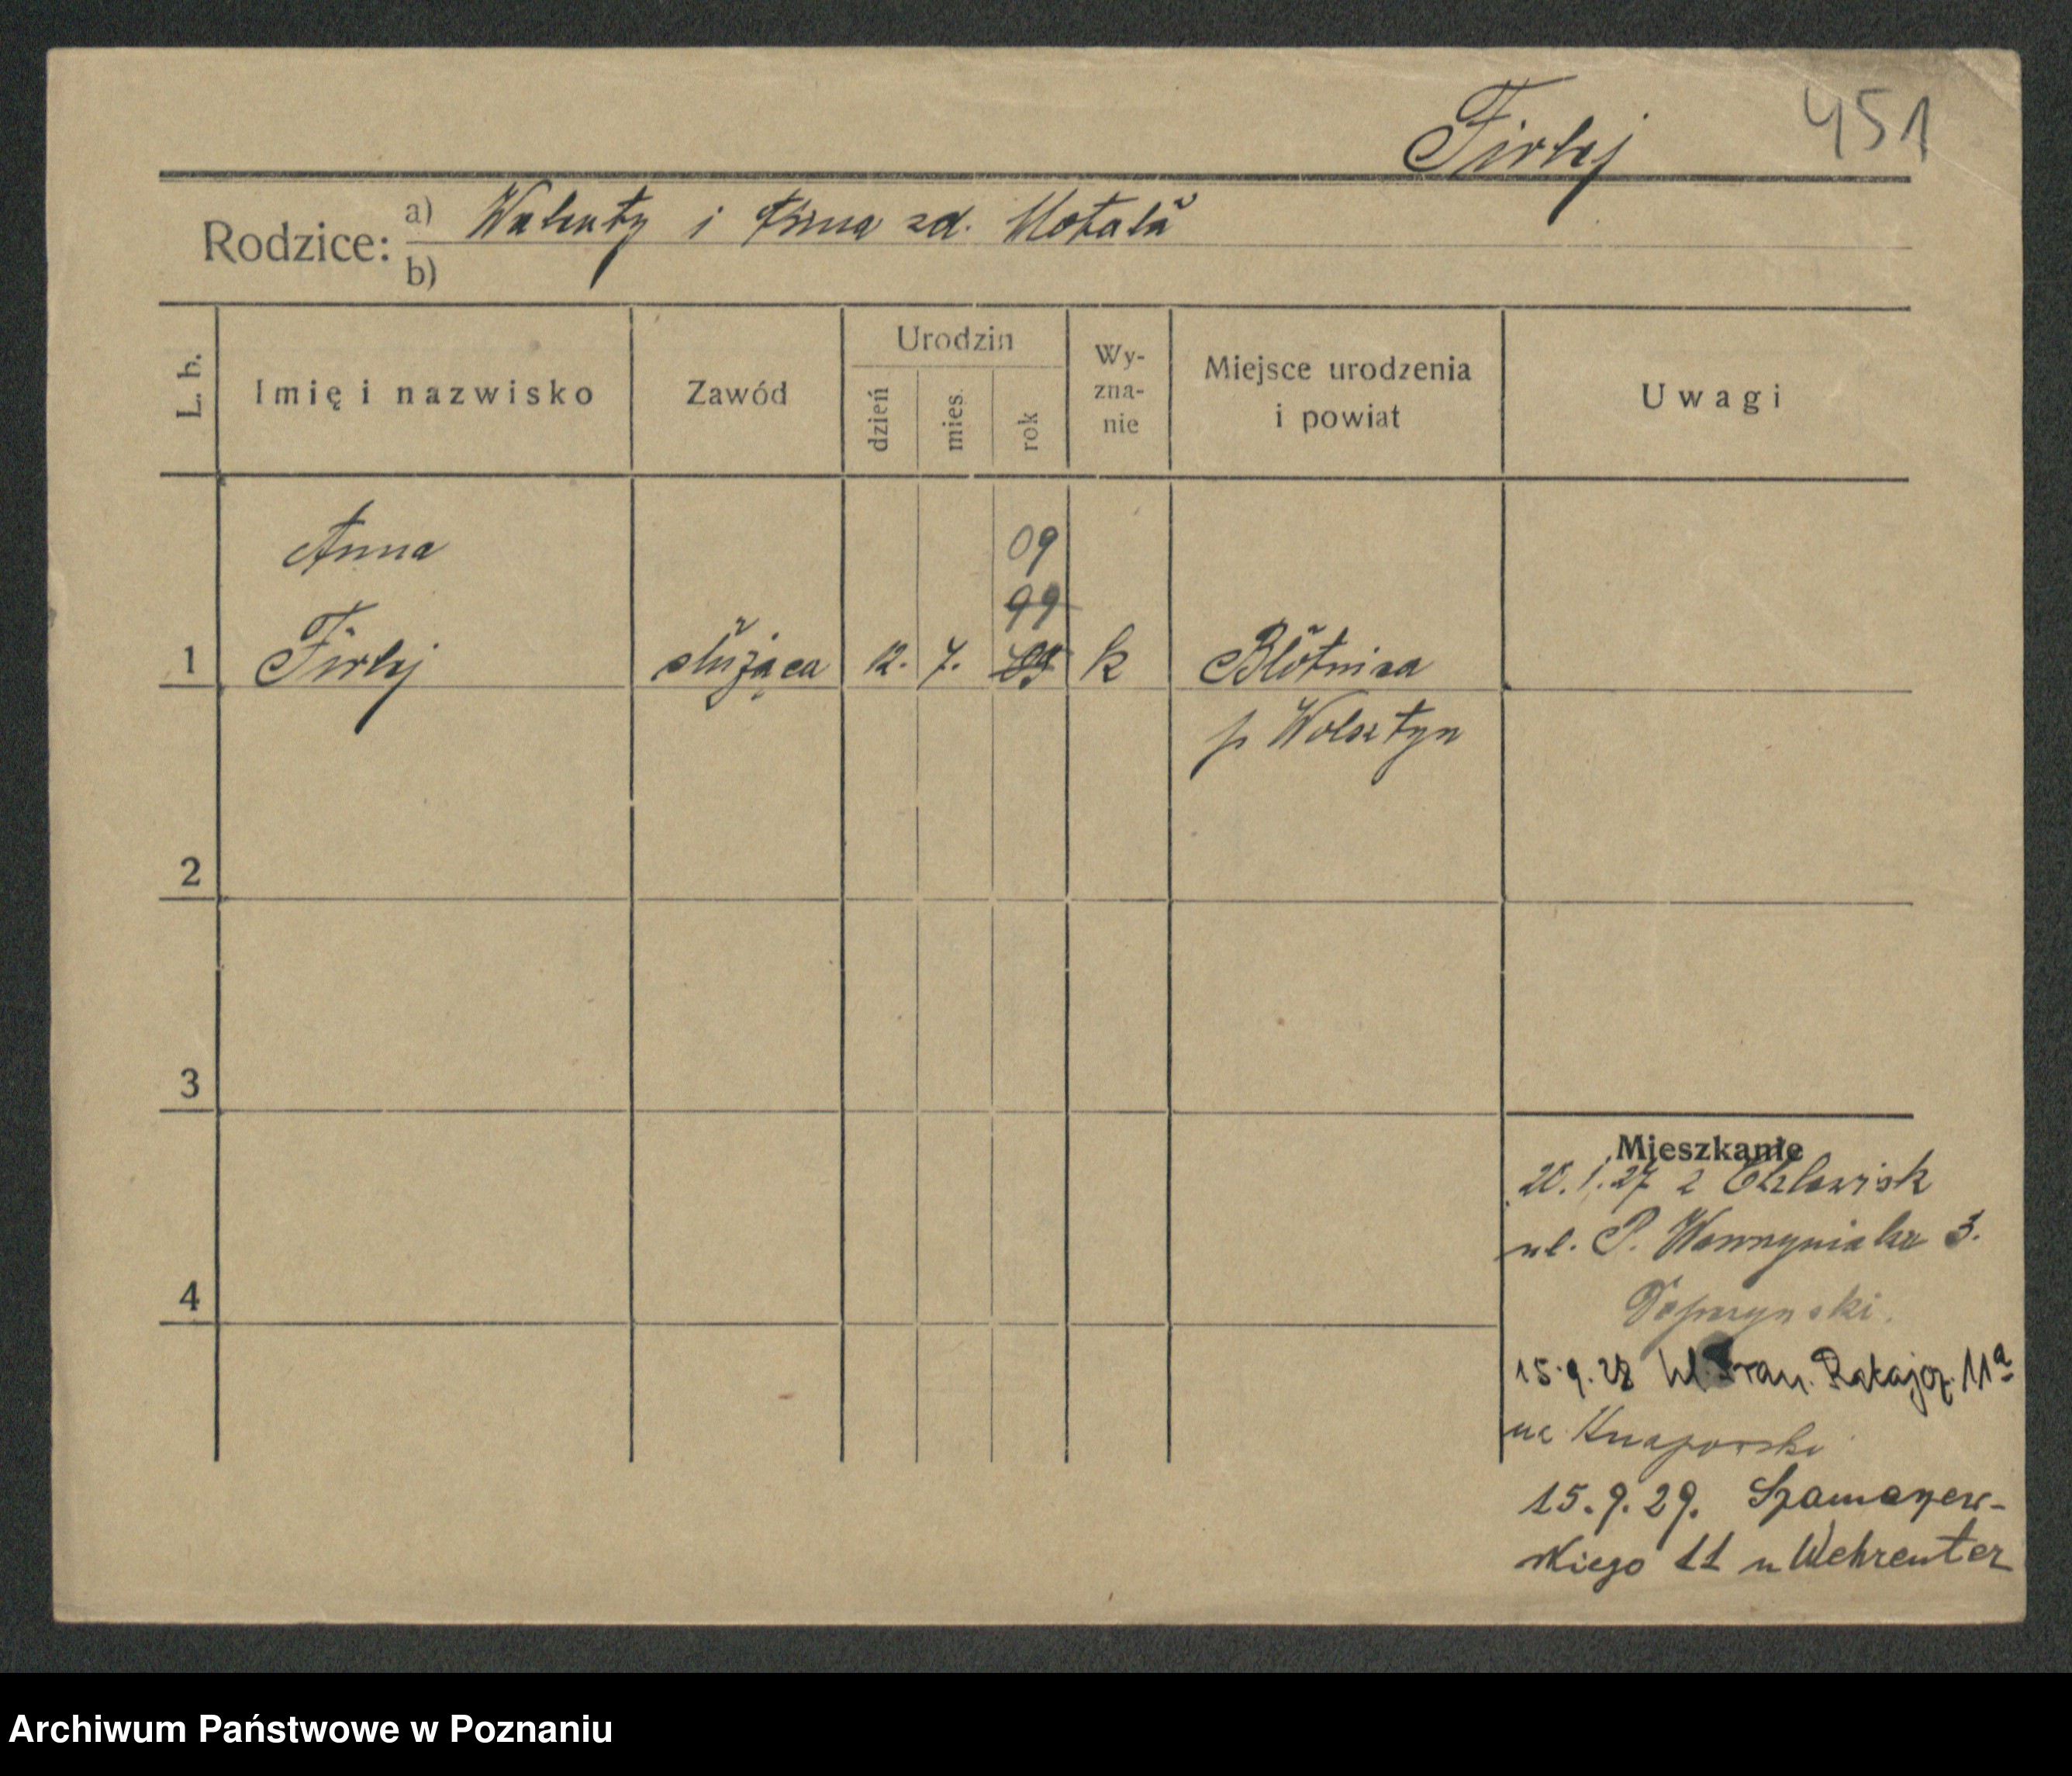 Firlej 451
Rodzice: a) Walenty i Anna zd. Motała
b)
L. b. Imię i nazwisko Zawód Urodzin dzień mies. rok Wy-zna-nie Miejsce urodzenia i powiat Uwagi
Anna 09
99
1 Firlej służąca 12. 7. k Błotnica
p Wolsztyn
2
3
Mieszkanie
20.1.27 z Chlewisk
ul. P. Wawrzyniaka 3.
4
15.9.28 Ul. Fran. Ratajcz. 11a
15.9.29. Szamarzew-
skiego 11 u Wehrenter
Archiwum Państwowe w Poznaniu